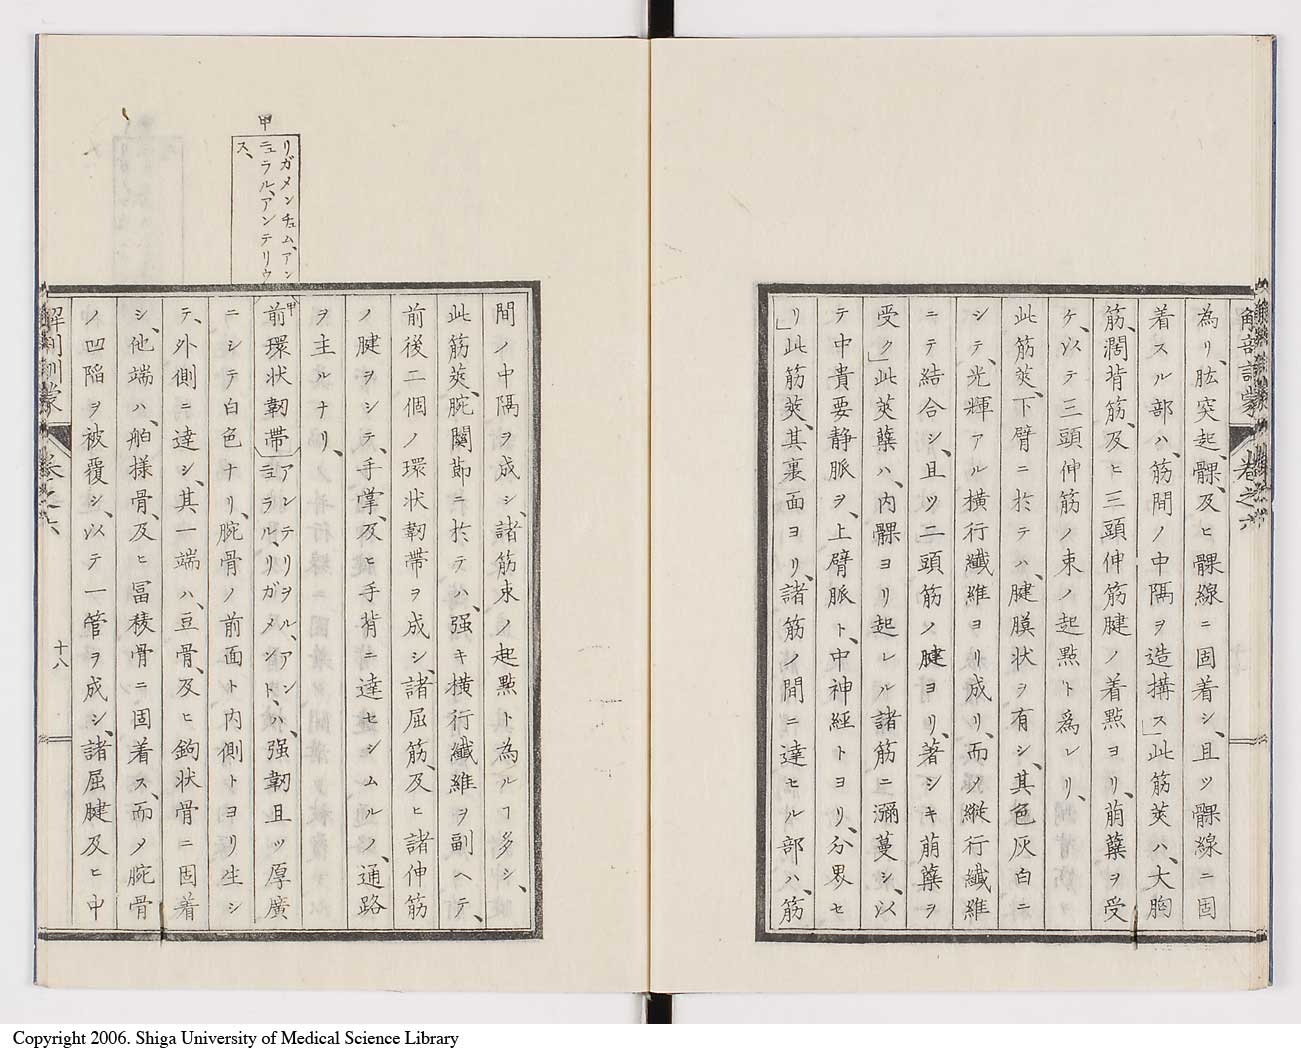 解剖訓蒙 卷之六
為リ、肱突起、髁、及ヒ髁線ニ固着シ、且ツ髁線ニ固
着スル部ハ、筋間ノ中隔ヲ造搆ス」此筋莢ハ、大胸
筋、濶背筋、及ヒ三頭伸筋腱ノ着點ヨリ、萠蘖ヲ受
ケ、以テ三頭伸筋ノ束ノ起點ト爲レリ、
此筋莢、下臂ニ於テハ、腱膜状ヲ有シ、其色灰白ニ
シテ、光輝アル横行纖維ヨリ成リ、而メ縱行纖維
ニテ結合シ、且ツ二頭筋ノ腱ヨリ、著シキ萠蘖ヲ
受ク」此莢蘖ハ、内髁ヨリ起レル諸筋ニ瀰蔓シ、以
テ中貴要静脈ヲ、上臂脈ト、中神経トヨリ、分界セ
リ」此筋莢、其裏面ヨリ、諸筋ノ間ニ達セル部ハ、筋
間ノ中隔ヲ成シ、諸筋束ノ起點ト為ルヿ多シ、
此筋莢、腕關節ニ於テハ、强キ横行纖維ヲ副ヘテ、
前後二個ノ環状韌帯ヲ成シ、諸屈筋、及ヒ諸伸筋
ノ腱ヲシテ、手掌、及ヒ手背ニ達セシムルノ、通路
ヲ主ルナリ、
甲
リガメンチュム、アン
ニュラル、アンテリウ
ス、
甲
前環状韌帯
アンテリヲル、アン
ニュラル、リガメント、
ハ、强韌且ツ厚廣
ニシテ白色ナリ、腕骨ノ前面ト内側トヨリ生シ
テ、外側ニ達シ、其一端ハ、豆骨、及ヒ鉤状骨ニ固着
シ、他端ハ、舶様骨、及ヒ冨稜骨ニ固着ス、而メ腕骨
ノ凹陷ヲ被覆シ、以テ一管ヲ成シ、諸屈腱及ヒ中
解剖訓蒙 卷之六
十八
Copyright 2006. Shiga University of Medical Science Library